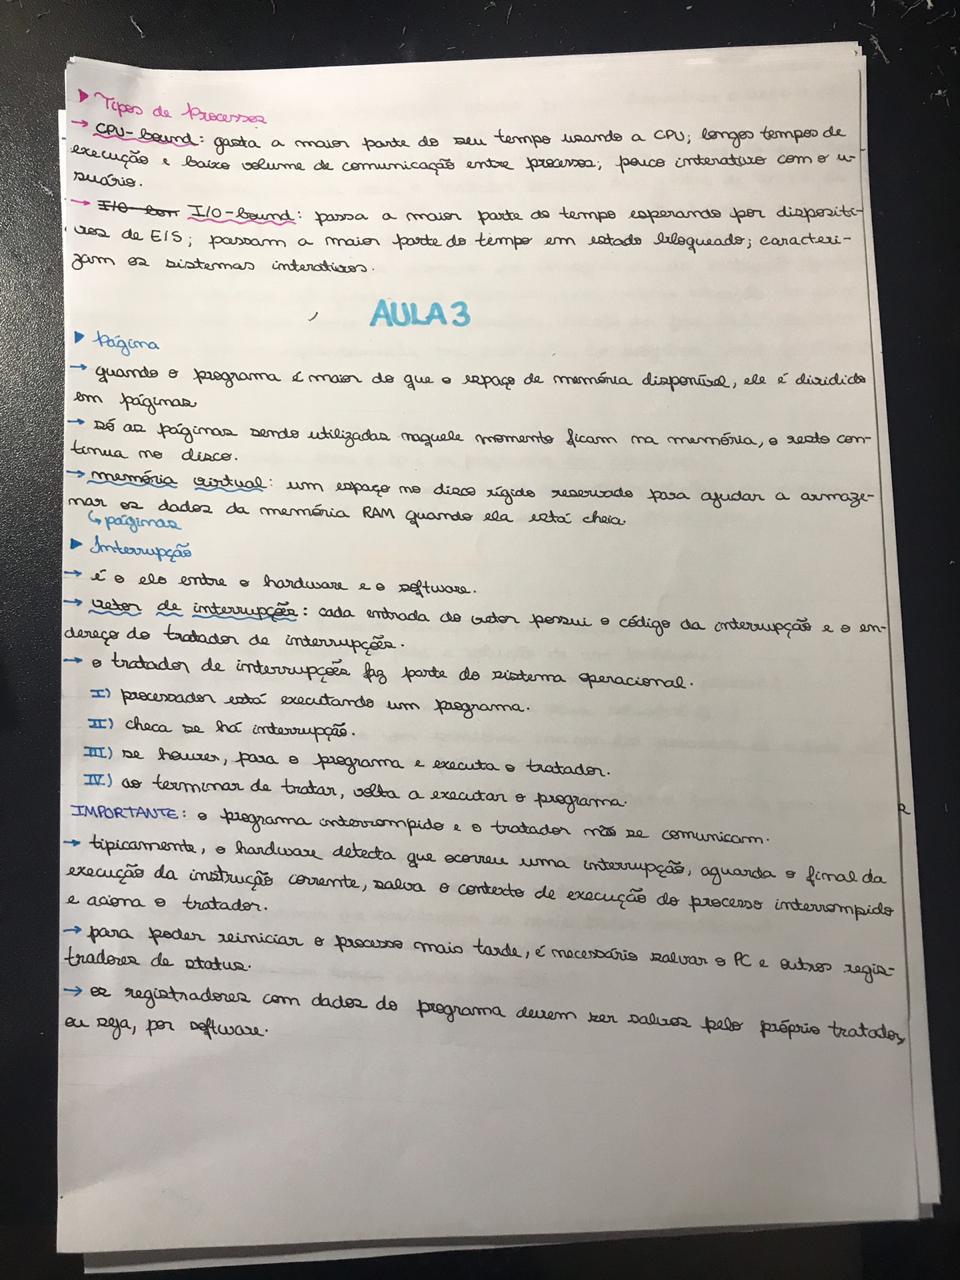 ▶ Tipos de Processos
→ CPU-bound: gasta a maior parte do seu tempo usando a CPU; longos tempos de
execução e baixo volume de comunicação entre processos; pouco interativo com o u-
suário.
→ I/O-bound: passa a maior parte do tempo esperando por dispositi-
vos de E/S; passam a maior parte do tempo em estado bloqueado; caracteri-
zam os sistemas interativos.
AULA 3
▶ Página
→ quando o programa é maior do que o espaço de memória disponível, ele é dividido
em páginas
→ só as páginas sendo utilizadas naquele momento ficam na memória, o resto con-
tinua no disco.
→ memória virtual: um espaço no disco rígido reservado para ajudar a armaze-
nar os dados da memória RAM quando ela está cheia.
↳ páginas
▶ Interrupção
→ é o elo entre o hardware e o software.
→ vetor de interrupções: cada entrada do vetor possui o código da interrupção e o en-
dereço do tratador de interrupções.
→ o tratador de interrupções faz parte do sistema operacional.
I) processador está executando um programa.
II) checa se há interrupção.
III) se houver, para o programa e executa o tratador.
IV) ao terminar de tratar, volta a executar o programa.
IMPORTANTE: o programa interrompido e o tratador não se comunicam.
→ tipicamente, o hardware detecta que ocorreu uma interrupção, aguarda o final da
execução da instrução corrente, salva o contexto de execução do processo interrompido
e aciona o tratador.
→ para poder reiniciar o processo mais tarde, é necessário salvar o PC e outros regis-
tradores de status.
→ os registradores com dados do programa devem ser salvos pelo próprio tratador,
ou seja, por software.